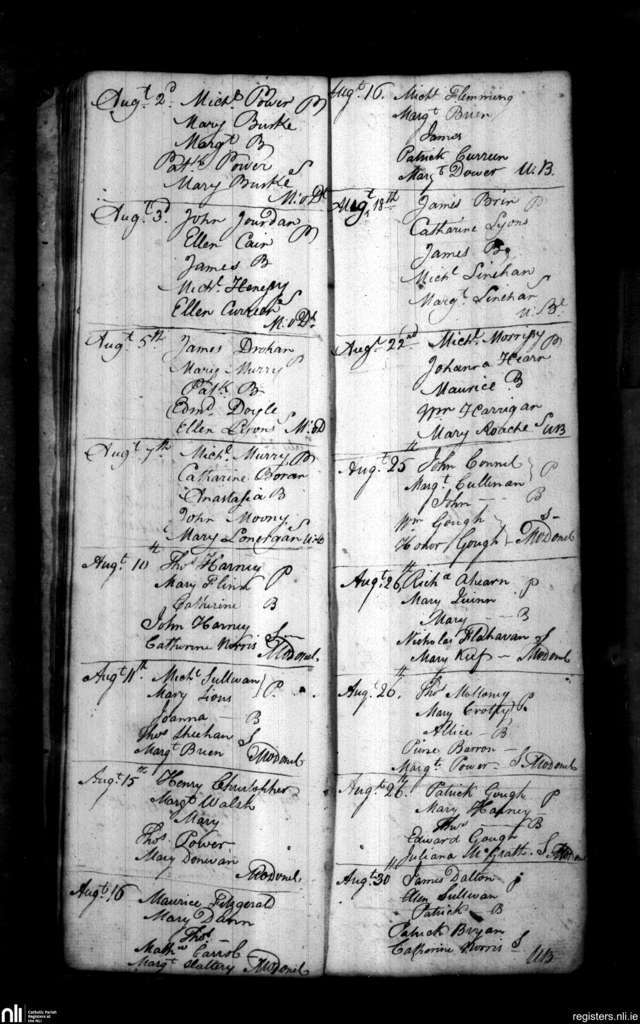 Augt. 2d. Michl. Power P
Mary Burke
Margt B
Patk. Power
Mary Burke S
M. o Dl
Augt. 3d John Jourdan P
Ellen Cain
James B
Michl. Henesy
Ellen Curreen S
M. o Dl
Augt 5th James Drohan P
Mary Murry
Patk. B
Edmd. Doyle
Ellen Lyons S M. oD
Augt. 7th Michl. Murry P
Catharine Boran
Anastasia B
John Moony
Mary Lonergan S
Augt. 10th Thos. Harney
Mary Flink P
Catherine B
John Harney
Catherine Norris S McDonel
Augt 11th Michl. Sullivan
Mary Lions P.
Joanna B
Thos Sheehan S
Margt Bruen McDonel
Augt. 15th Henry Christopher
Margt Walsh
Mary
Thos. Power
Mary Donevan
McDonel
Augt. 16 Maurice Fitzgerald
Mary Dunn
Thos.
Carrol
Margt. Slattery McDonel
Augt. 16. Michl Flemming
Margt. Bruen
James
Patrick Curreen
Margt Dower U. B.
Augt. 18th James Brin P
Catharine Lyons
James B
Michl Linehan
Margt. Linehan S
Augt. 22nd Michl. Morrisy
Johanna Hearn P
Maurice B
Wm Harrigan
Mary Roache S UB
Augt. 25th John Connel P
Margt. Cullinan
John B
Wm Gough S
Honor Gough McDonel
Augt. 26th Richd Ahearn P
Mary Quinn
Mary B
Nicholas Flahavan S
Mary Kief McDonel
Augt. 26th Thos Maloney
Mary Crotty P.
Allice B
Pierse Barron
Margt. Power S McDonel
Augt. 26th Patrick Gough P
Mary Harney
Thos B
Edward Gough
Juliana McGrath S
Augt 30th James Dalton P
Ellen Sullivan
Patrick B
Patrick Bryan
Catherine Norris S
UB
nli Catholic Parish
Registers at
the NLI
registers.nli.ie